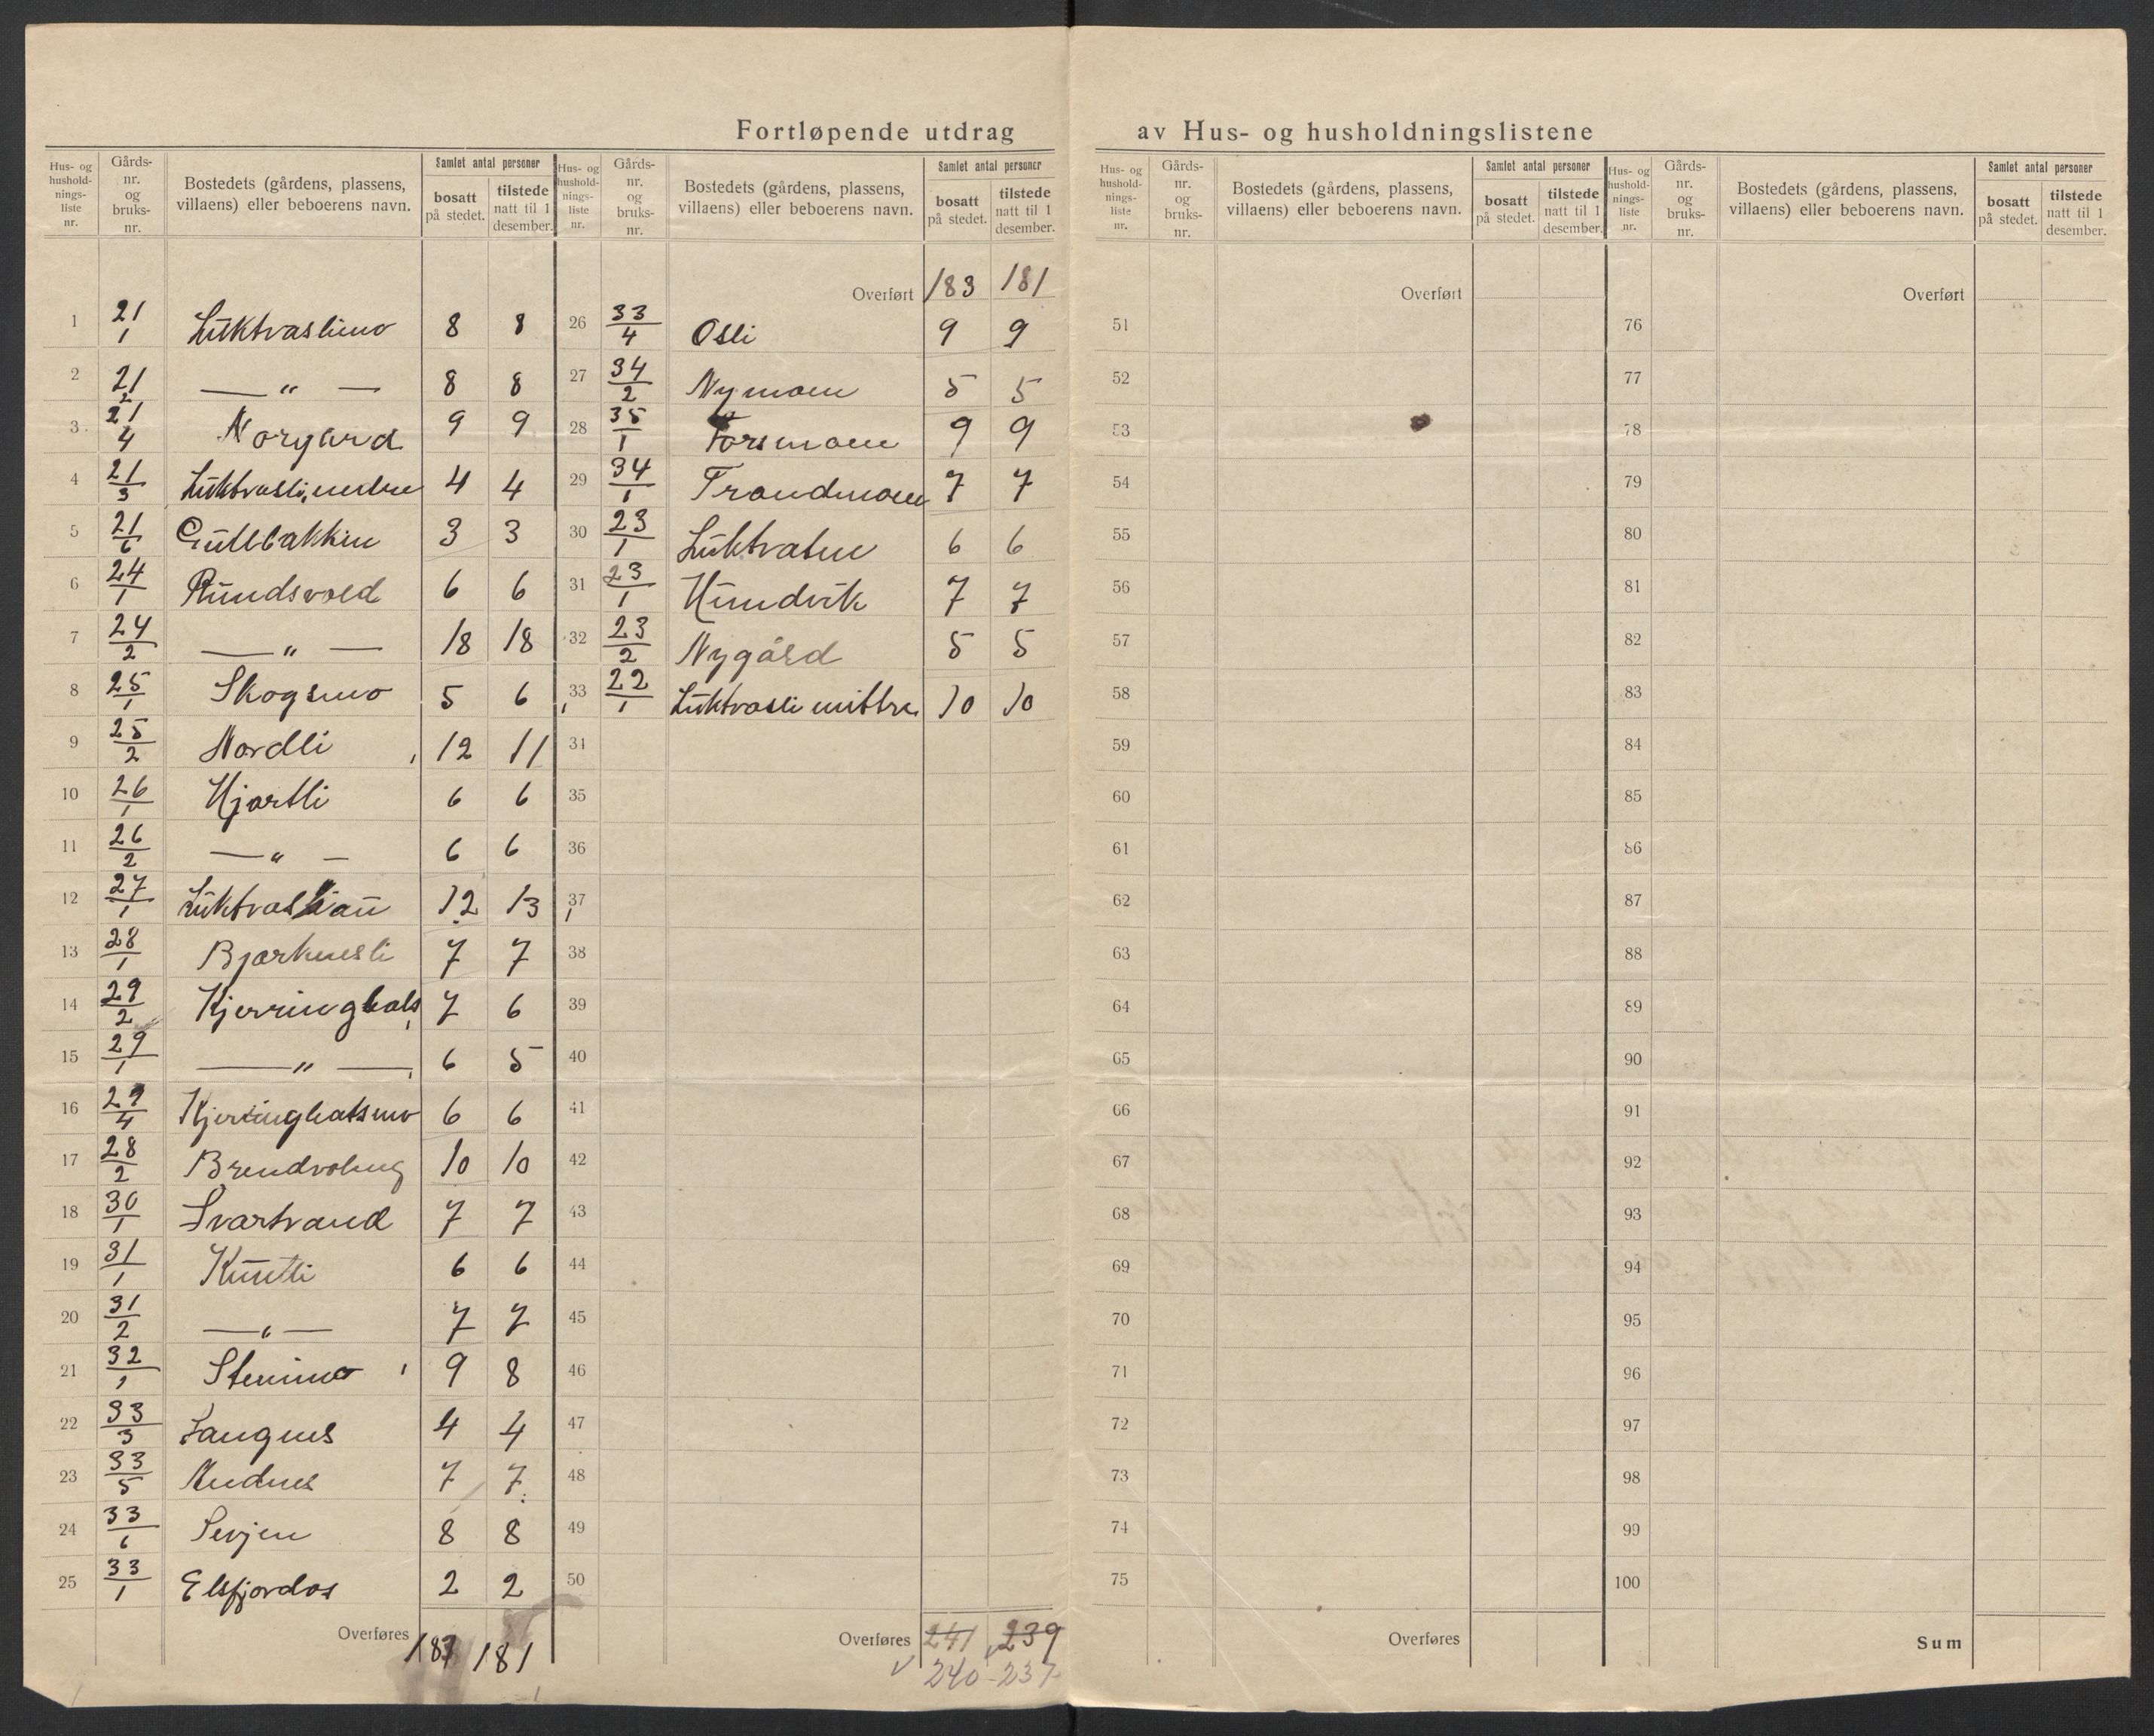 Fortløpende utdrag av Hus- og husholdningslistene
Hus- og hushold- nings- liste nr. | Gårds- nr. og bruks- nr. | Bostedets (gårdens, plassens, villaens) eller beboerens navn. | Samlet antal personer | bosatt på stedet. | tilstede natt til 1 desember.
1 21/1 Luktvaslimo 8 8
2 21/2 — " — 8 8
3 21/4 Norgård 9 9
4 21/3 Luktvasli, nedre 4 4
5 21/6 Gullbakken 3 3
6 24/1 Rundsvold 6 6
7 24/2 — " — 18 18
8 25/1 Skogsmo 5 6
9 25/2 Nordli 12 11
10 26/1 Hjartli 6 6
11 26/2 — " — 6 6
12 27/1 12 13
13 28/1 Bjørknesli 7 7
14 29/2 Kjerringhals 7 6
15 29/1 — " — 6 5
16 29/4 Kjerringhalsmo 6 6
17 28/2 10 10
18 30/1 Svartvand 7 7
19 31/1 Kuntli 6 6
20 31/2 — " — 7 7
21 32/1 Stenmo 9 8
22 33/3 Langnes 4 4
23 33/5 7 7
24 33/6 8 8
25 33/1 Elsfjordos 2 2
Overføres 183 181
Hus- og hushold- nings- liste nr. | Gårds- nr. og bruks- nr. | Bostedets (gårdens, plassens, villaens) eller beboerens navn. | Samlet antal personer | bosatt på stedet. | tilstede natt til 1 desember.
Overført 183 181
26 33/4 Osli 9 9
27 34/2 Nymoen 5 5
28 35/1 Forsmoen 9 9
29 34/1 Trondmoen 7 7
30 23/1 Luktvatn 6 6
31 23/1 Hundvik 7 7
32 23/2 Nygård 5 5
33 22/1 Luktvasli mittre 10 10
34
35
36
37
38
39
40
41
42
43
44
45
46
47
48
49
50
Overføres 241 239
240 - 237
Hus- og hushold- nings- liste nr. | Gårds- nr. og bruks- nr. | Bostedets (gårdens, plassens, villaens) eller beboerens navn. | Samlet antal personer | bosatt på stedet. | tilstede natt til 1 desember.
Overført
51
52
53
54
55
56
57
58
59
60
61
62
63
64
65
66
67
68
69
70
71
72
73
74
75
Overføres
Hus- og hushold- nings- liste nr. | Gårds- nr. og bruks- nr. | Bostedets (gårdens, plassens, villaens) eller beboerens navn. | Samlet antal personer | bosatt på stedet. | tilstede natt til 1 desember.
Overført
76
77
78
79
80
81
82
83
84
85
86
87
88
89
90
91
92
93
94
95
96
97
98
99
100
Sum